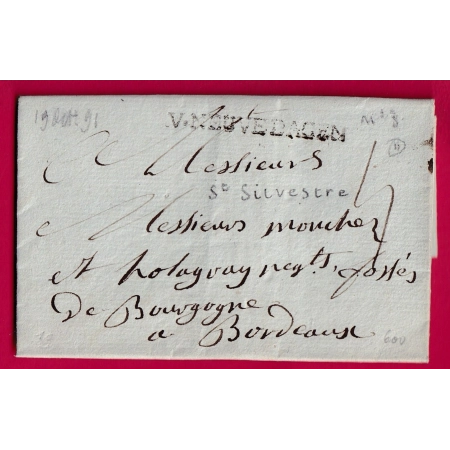 19 Oct 91
N° 3
V.NEUVE DAGEN
11
Messieurs
St Silvestre
Messieurs moucher
et holagray negts. fossés
De Bourgogne
a Bordeaux